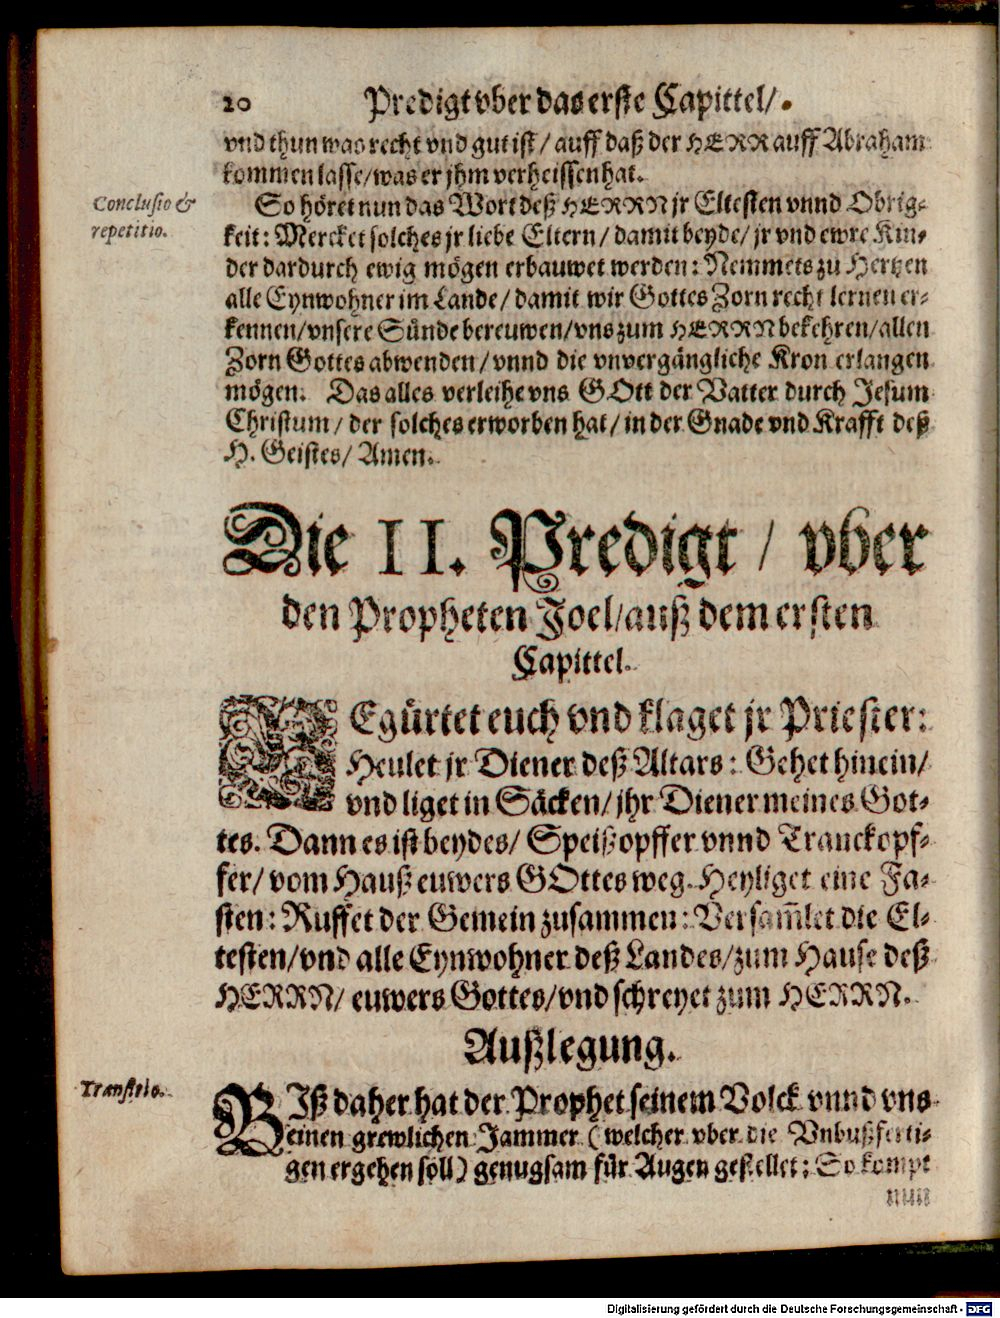 20 Predigt vber das erste Capittel/
vnd thun was recht vnd gut ist/ auff daß der HERR auff Abraham
kommen lasse/ was er jhm verheissen hat.
Conclusio &
repetitio.
So höret nun das Wort deß HERRN jr Eltesten vnnd Obrig-
keit: Mercket solches jr liebe Eltern/ damit beyde/ jr vnd ewre Kin-
der dardurch ewig mögen erbauwet werden: Nemmets zu Hertzen
alle Eynwohner im Lande/ damit wir Gottes Zorn recht lernen er-
kennen/ vnsere Sünde bereuwen/ vns zum HERRN bekehren/ allen
Zorn Gottes abwenden/ vnnd die vnvergängliche Kron erlangen
mögen. Das alles verleihe vns GOtt der Vatter durch Jesum
Christum/ der solches erworben hat/ in der Gnade vnd Krafft deß
H. Geistes/ Amen.
Die II. Predigt/ vber
den Propheten Joel/ auß dem ersten
Capittel.
BEgürtet euch vnd klaget jr Priester:
Heulet jr Diener deß Altars: Gehet hinein/
vnd liget in Säcken/ jhr Diener meines Got-
tes. Dann es ist beydes/ Speißopffer vnnd Tranckopf-
fer/ vom Hauß euwers GOttes weg. Heyliget eine Fa-
sten: Ruffet der Gemein zusammen: Versam̃let die El-
testen/ vnd alle Eynwohner deß Landes/ zum Hause deß
HERRN/ euwers Gottes/ vnd schreyet zum HERRN.
Außlegung.
Transitio.
BIß daher hat der Prophet seinem Volck vnnd vns
einen grewlichen Jammer (welcher vber die Vnbußferti-
gen ergehen soll) genugsam für Augen gestellet: So kompt
nun
Digitalisierung gefördert durch die Deutsche Forschungsgemeinschaft - DFG